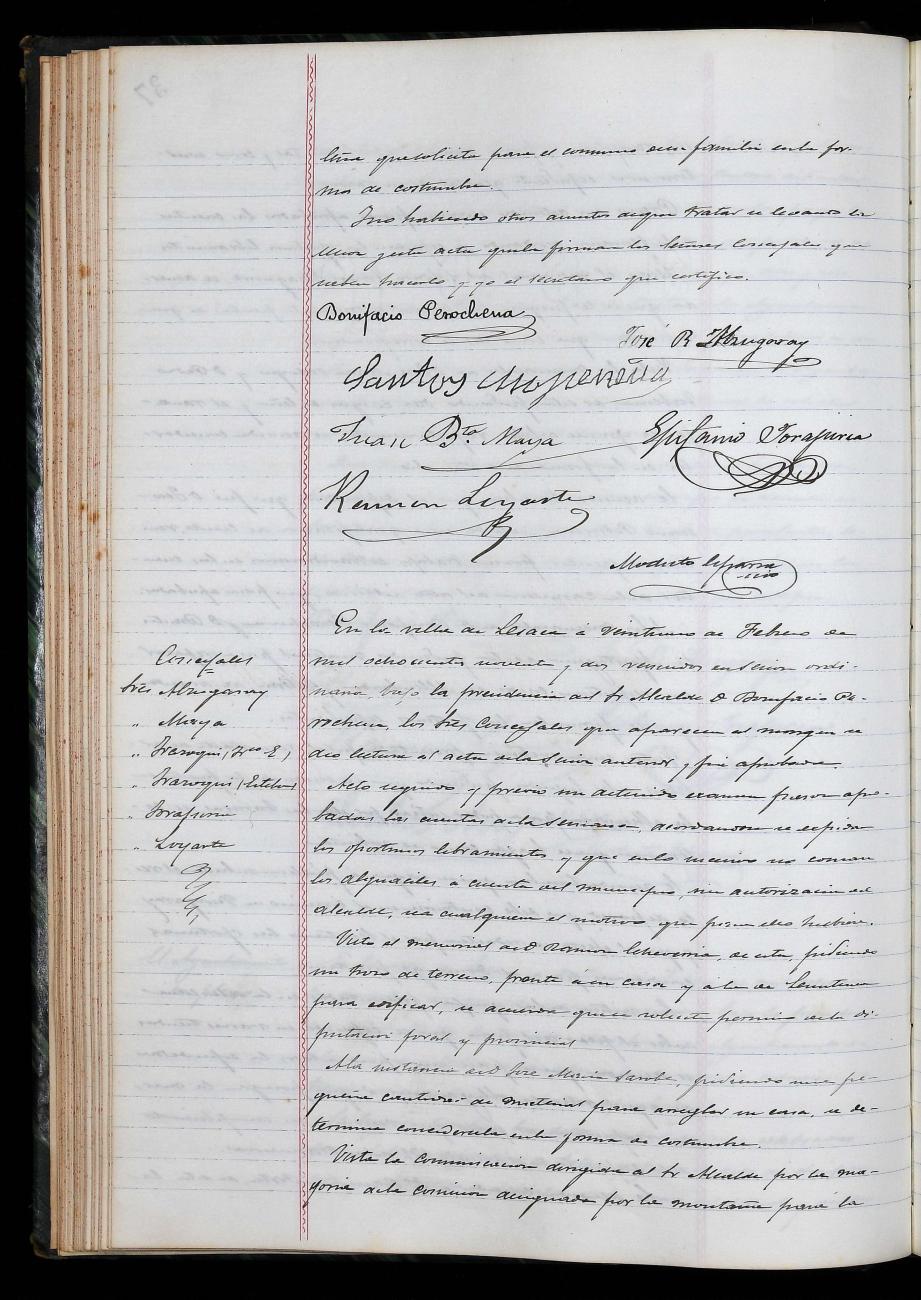 leña que solicita para el consumo de su familia en la for-
ma de costumbre.
Y no habiendo otros asuntos de que tratar se levantó la
sesion y esta acta que la firman los Señores Concejales que
saben hacerlo y yo el secretario que certifico.
Bonifacio Perochena
José R Abugaray
Santos
Juan Bta. Maya
Epifanio Torajurea
Ramon Loyarte
Modesto Esparza
srio
En la villa de Lesaca á veintiuno de Febrero de
mil ochocientos noventa y dos reunidos en sesion ordi-
naria bajo la presidencia del Sr Alcalde D Bonifacio Pe-
rochena, los Sres Concejales que aparecen al margen se
dio lectura al acta de la sesion anterior y fue aprobada.
Concejales
Sres Abugarray
" Maya
" Irazoqui (Fco E)
" Irazoqui (Esteban)
" Torajuria
" Loyarte
Acto seguido y previo un detenido examen fueron apro-
badas las cuentas de la semana, acordandose se espidan
los oportunos libramientos y que en lo sucesivo no coman
los alguaciles á cuenta del municipio, sin autorizacion del
alcalde, sea cualquiera el motivo que para ello hubiera.
Visto el memorial de D Ramon Echeverria, de esta, pidiendo
un trozo de terreno, frente á su casa y á la de
para edificar, se acuerda que se solicite permiso de la Di-
putacion foral y provincial
A la instancia de D Jose Maria Sarobe, pidiendo una pe-
queña cantidad de material para arreglar su casa, se de-
termina concedersela en la forma de costumbre.
Vista la comunicacion dirigida al Sr Alcalde por la ma-
yoria de la comision designada por la montaña para la